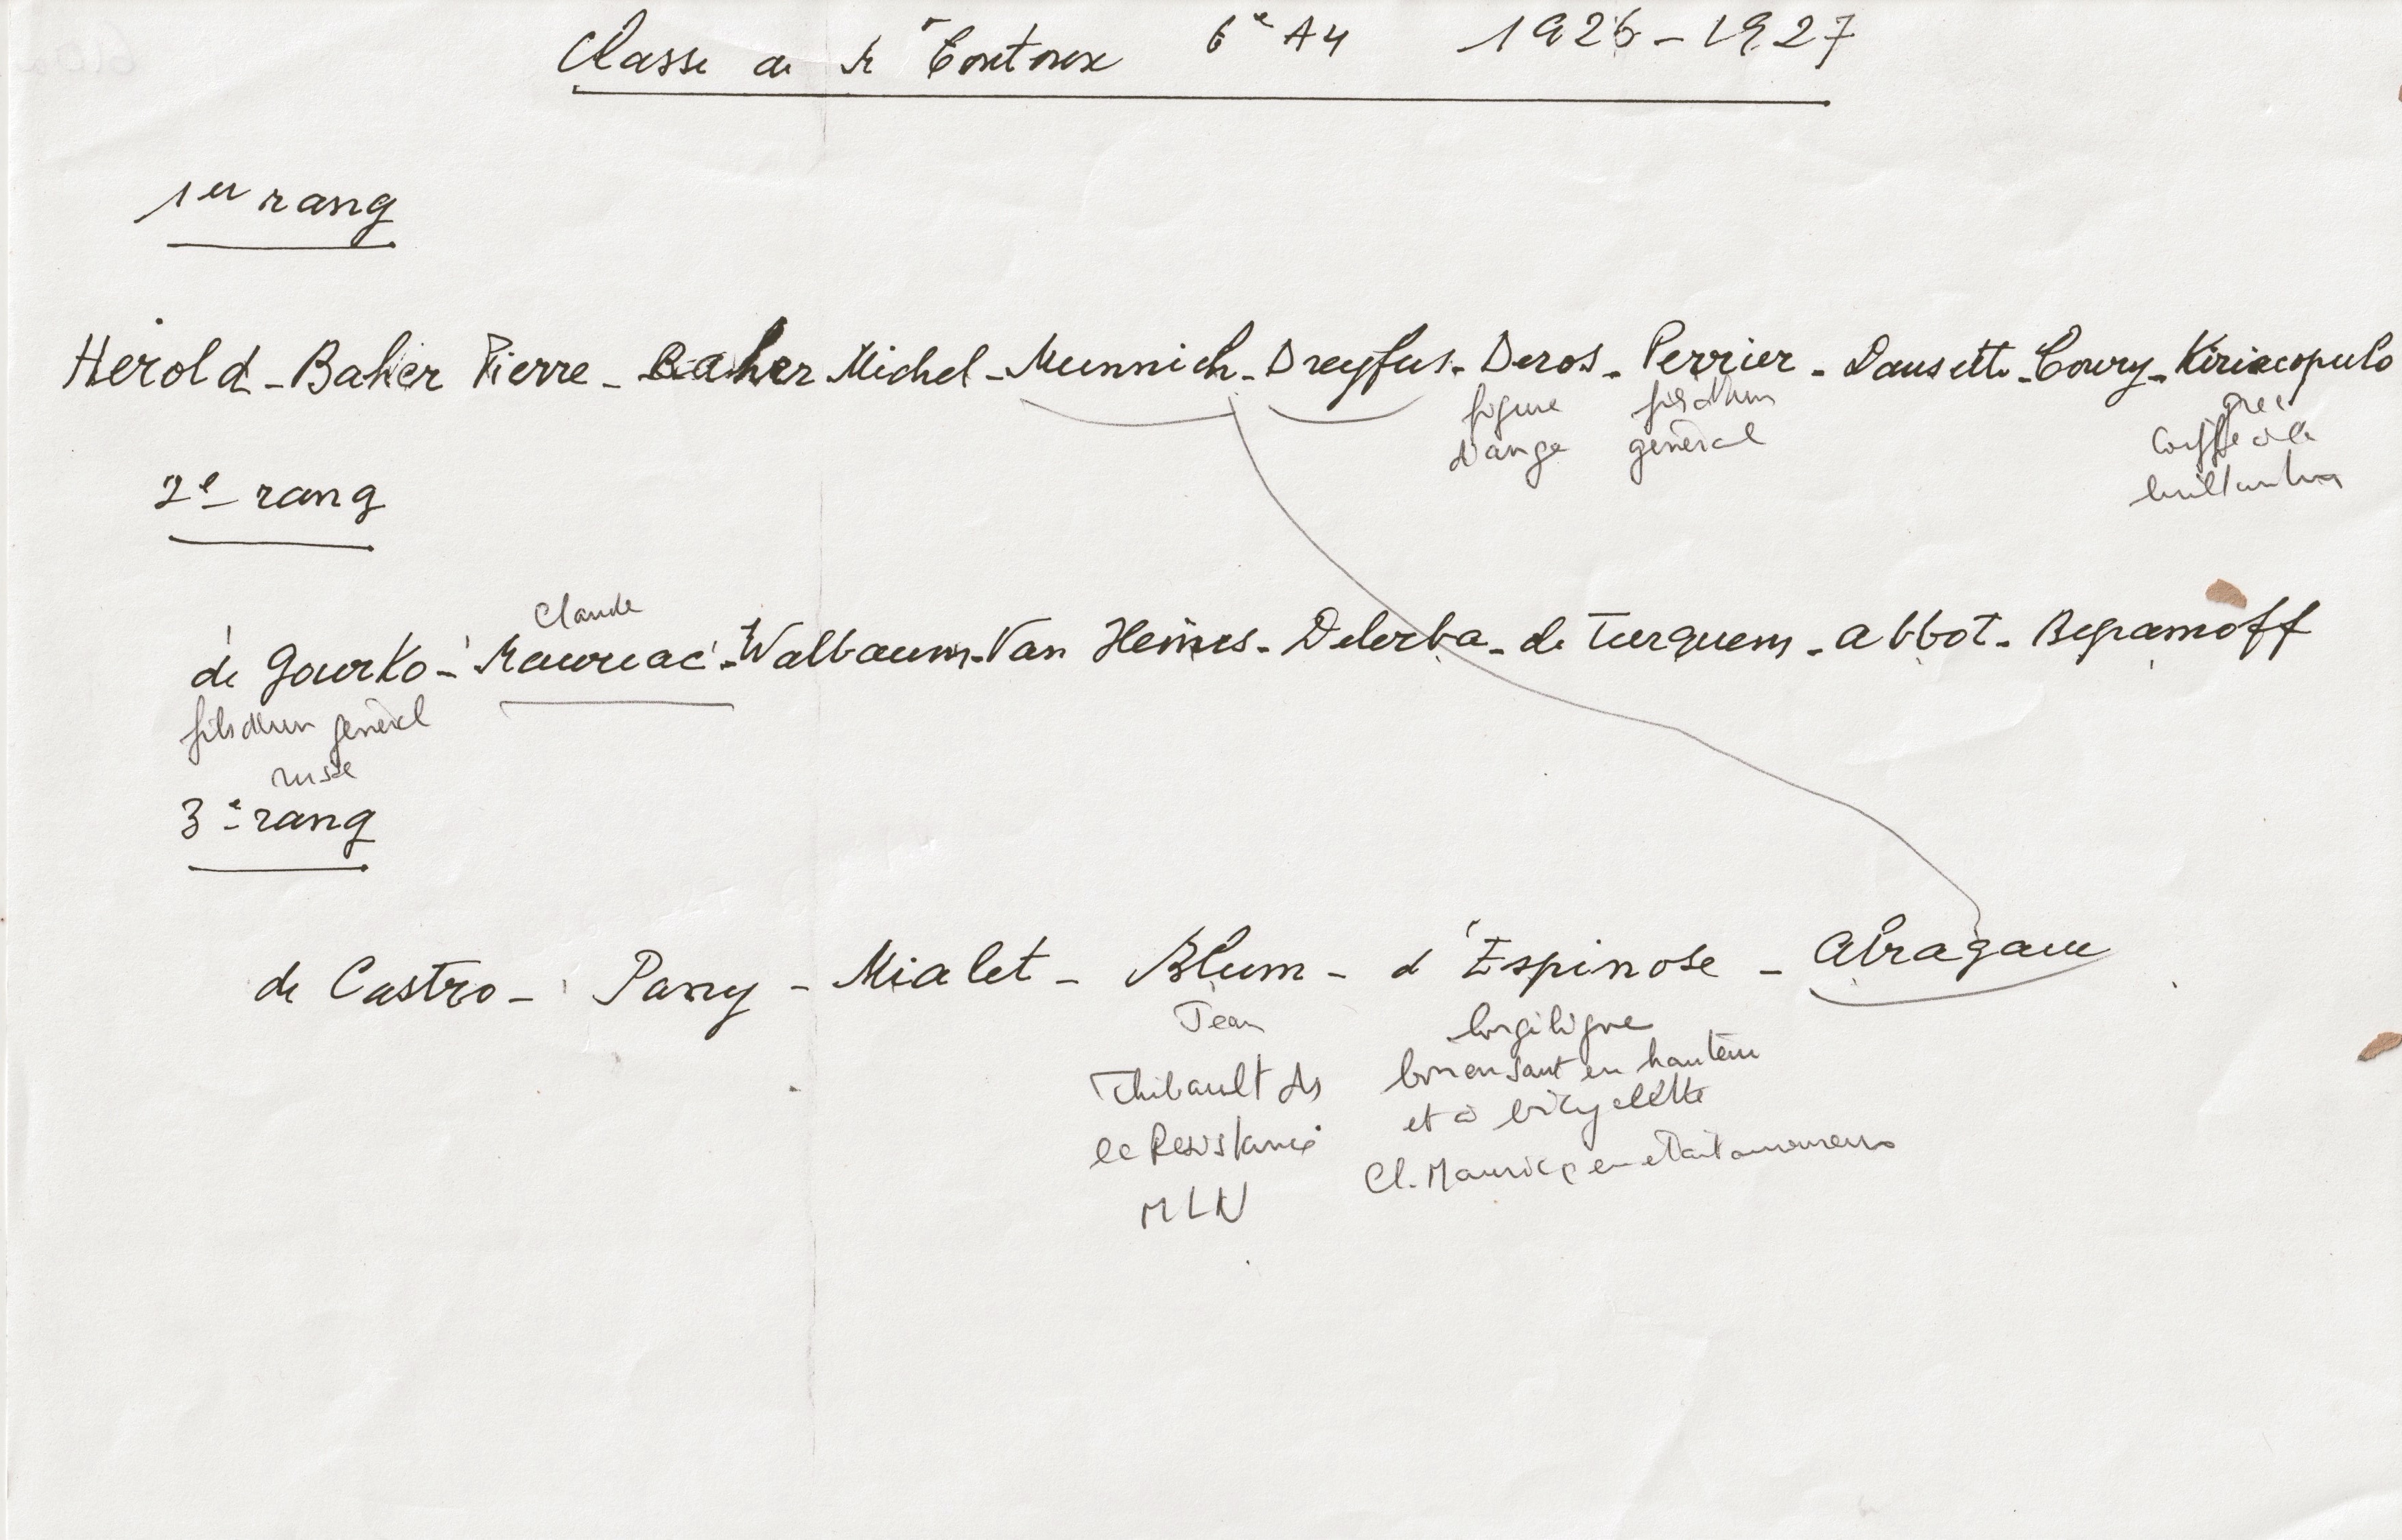 Classe de Mr Coutoux 6e A4 1926-1927
1er rang
Herold - Baher Pierre - Baher Michel - Munnich - Dreyfus - Deros - Perrier - Dausette - Coury - Kiriacopulo
figure fils d'un grec
d'ange général coiffé à la
brillantine
2e rang
Claude
de Gourko - Mauriac - Walbaum - Van Heims - Delerba - de Turquem - Abbot - Begramoff
fils d'un général
russe
3e rang
de Castro - Pany - Mialet - Blum - d'Espinose - Abragam
Jean longiligne
Thibault ds bon en saut en hauteur
la Résistance et à bicyclette
MLN Cl. Mauriac en était amoureux